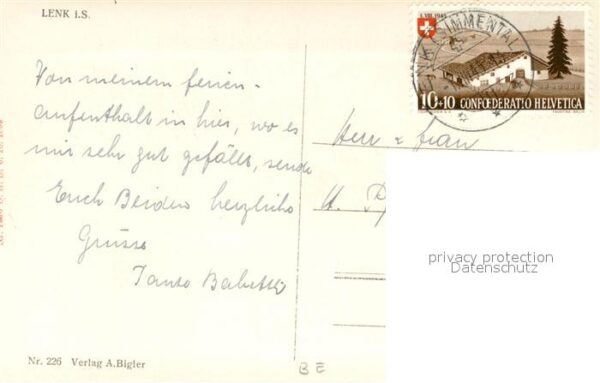 LENK i.S.
Von meinem ferien-
aufenthalt in hier, wo es
mir sehr gut gefällt, sende
Euch Beiden herzliche
Grüsse
Tante Babetti
Nr. 226 Verlag A.Bigler
1. VIII 1945
SIMMENTAL
10+10 CONFOEDERATIO HELVETICA
Herr & Frau
privacy protection
Datenschutz
B E